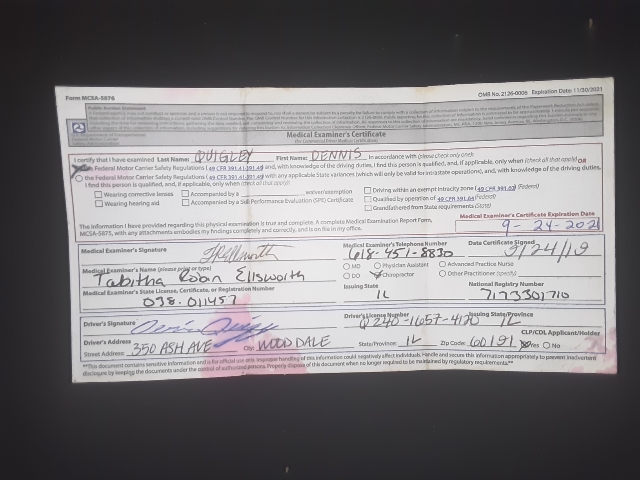 Form MCSA-5876 OMB No. 2126-0006 Expiration Date: 11/30/2021
Public Burden Statement
Medical Examiner's Certificate
(for Commercial Driver Medical Certification)
I certify that I have examined Last Name: QUIGLEY First Name: DENNIS in accordance with (please check only one):
the Federal Motor Carrier Safety Regulations (49 CFR 391.41-391.49) and, with knowledge of the driving duties, I find this person is qualified, and, if applicable, only when (check all that apply) OR
the Federal Motor Carrier Safety Regulations (49 CFR 391.41-391.49) with any applicable State variances (which will only be valid for intrastate operations), and, with knowledge of the driving duties,
I find this person is qualified, and, if applicable, only when (check all that apply):
Wearing corrective lenses Accompanied by a waiver/exemption Driving within an exempt intracity zone (49 CFR 391.62) (Federal)
Wearing hearing aid Accompanied by a Skill Performance Evaluation (SPE) Certificate Qualified by operation of 49 CFR 391.64 (Federal)
Grandfathered from State requirements (State)
The information I have provided regarding this physical examination is true and complete. A complete Medical Examination Report Form,
MCSA-5875, with any attachments embodies my findings completely and correctly, and is on file in my office.
Medical Examiner's Certificate Expiration Date
9-24-2021
Medical Examiner's Signature Medical Examiner's Telephone Number Date Certificate Signed
618-451-8830 9/24/19
Medical Examiner's Name (please print or type) MD Physician Assistant Advanced Practice Nurse
Tabitha Robin Ellsworth DO Chiropractor Other Practitioner (specify)
Medical Examiner's State License, Certificate, or Registration Number Issuing State National Registry Number
038.011457 IL 7173301710
Driver's Signature Driver's License Number Issuing State/Province
Q240-1657-4170 IL
Driver's Address CLP/CDL Applicant/Holder
Street Address: 350 ASH AVE City: WOOD DALE State/Province: IL Zip Code: 60191 Yes No
**This document contains sensitive information and is for official use only. Improper handling of this information could negatively affect individuals. Handle and secure this information appropriately to prevent inadvertent
disclosure by keeping the documents under the control of authorized persons. Properly dispose of this document when no longer required to be maintained by regulatory requirements.**